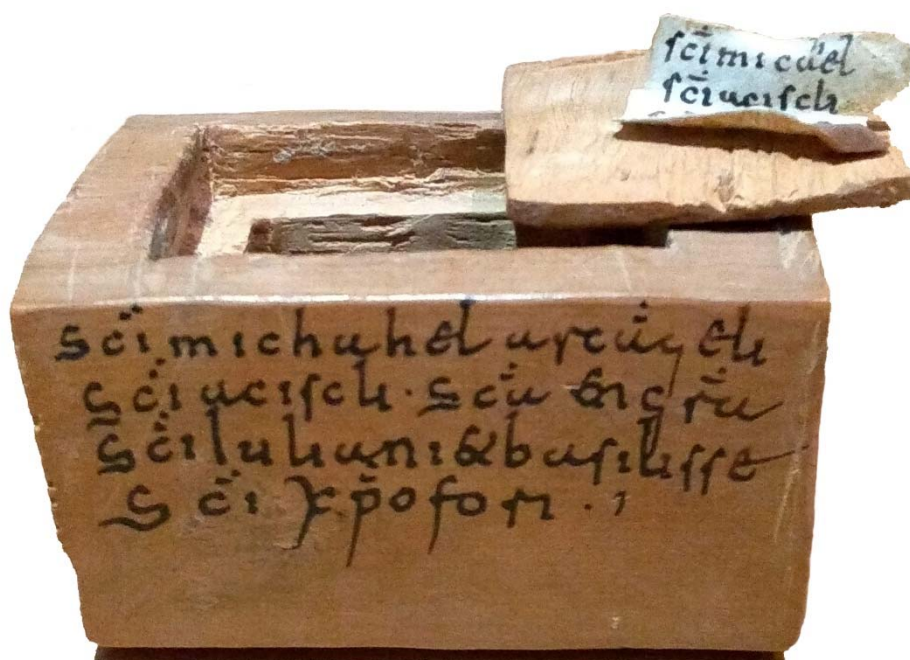 sc̄i micael
sc̄i aciscli
Sc̄i michahel arcāgeli
Sc̄i aciscli · Sc̄a engr̄a
Sc̄i iuliani & basilisse
Sc̄i xp̄ofori ·